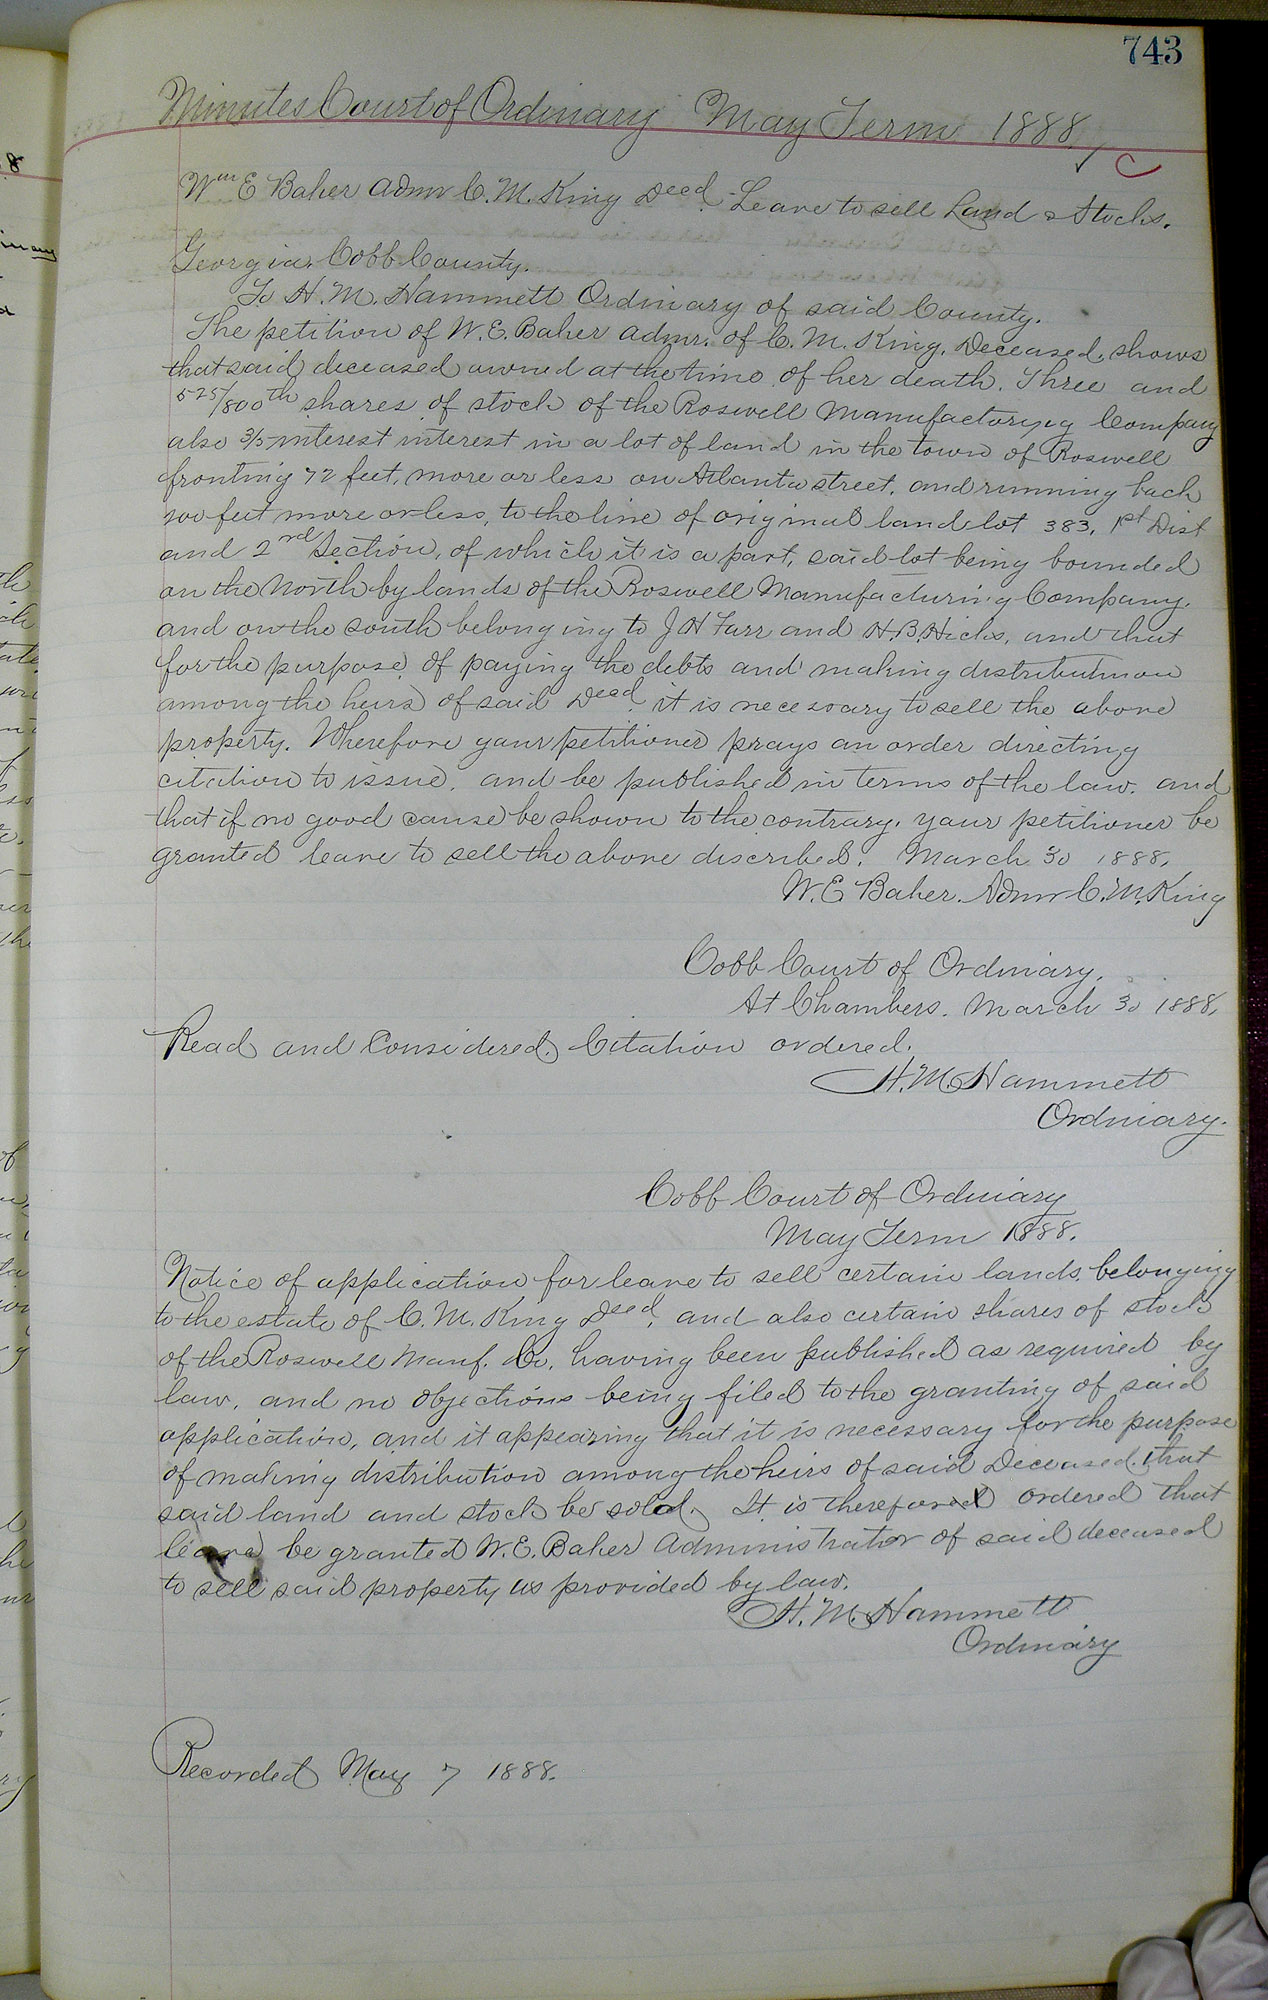 743
Minutes Court of Ordinary May Term 1888
Wm E Baker Admr C. M. King Decd. Leave to sell Land & Stocks.
Georgia. Cobb County.
To H. M. Hammett Ordinary of said County.
The petition of W. E. Baker admr. of C. M. King, Deceased, shows
that said deceased owned at the time of her death. Three and
525/800th shares of stock of the Roswell Manufactoryng Company
also 3/5 interest interest in a lot of land in the town of Roswell
fronting 72 feet, more or less on Atlanta street, and running back
100 feet more or less, to the line of original land lot 383, 1st Dist
and 2nd Section, of which it is a part, said lot being bounded
on the North by lands of the Roswell Manufacturing Company.
and on the south belonging to J H Farr and H. B. Hicks, and that
for the purpose of paying the debts and making distribution
among the heirs of said Decd. it is necessary to sell the above
property. Wherefore your petitioner prays an order directing
citation to issue, and be published in terms of the law. and
that if no good cause be shown to the contrary, your petitioner be
granted leave to sell the above discribed. March 30 1888,
W. E Baker. Admr C. M. King
Cobb Court of Ordinary,
At Chambers. March 30 1888,
Read and Considered, Citation ordered.
H. M. Hammett
Ordinary.
Cobb Court of Ordinary
May Term 1888.
Notice of application for leave to sell certain lands belonging
to the estate of C. M. King Dsed, and also certain shares of stock
of the Roswell Manf. Co. having been published as required by
law, and no objections being filed to the granting of said
application, and it appearing that it is necessary for the purpose
of making distribution among the heirs of said Deceased, that
said land and stock be sold. It is therefore ordered that
leave be granted W. E. Baker Administrator of said deceased
to sell said property as provided by law.
H. M. Hammett
Ordinary
Recorded May 7 1888.